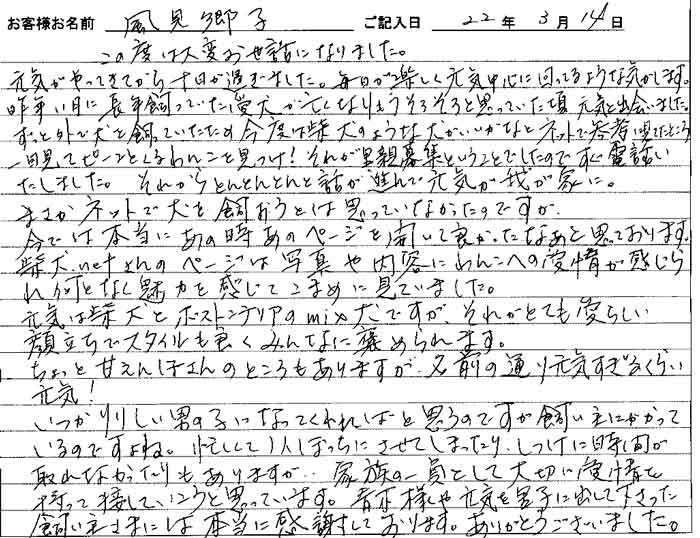 お客様お名前 風見郷子 ご記入日 22年 3月 14日
この度は大変お世話になりました。
元気がやってきてから十日が過ぎました。毎日が楽しく元気中心に回ってるような気がします。
昨年11月に長年飼っていた愛犬が亡くなりもうそろそろと思っていた頃元気と出会いました。
ずっと外で犬を飼っていたため今度は柴犬のような犬がいいかなとネットで参考に見てたところ
一目見てピーンとくるわんこを見つけ!それが里親募集ということでしたのですぐ電話い
たしました。それからとんとんとんと話が進んで元気が我が家に。
まさかネットで犬を飼おうとは思っていなかったのですが、
今では本当にあの時あのページを開いて良かったなあと思っております。
柴犬.netさんのページは写真や内容にわんこへの愛情が感じら
れ何となく魅力を感じてこまめに見ていました。
元気は柴犬とボストンテリアのmix犬ですが、それがとても愛らしい
顔立ちでスタイルも良くみんなに褒められます。
ちょっと甘えんぼさんのところもありますが、名前の通り元気すぎるくらい
元気!
いつかりりしい男の子になってくれればと思うのですが飼い主にかかって
いるのですよね。忙しくて1人ぼっちにさせてしまったり、しつけに時間が
取れなかったりもありますが、家族の一員として大切に愛情を
持って接していこうと思っています。様や元気を里子に出して下さった
飼い主さまには本当に感謝しております。ありがとうございました。